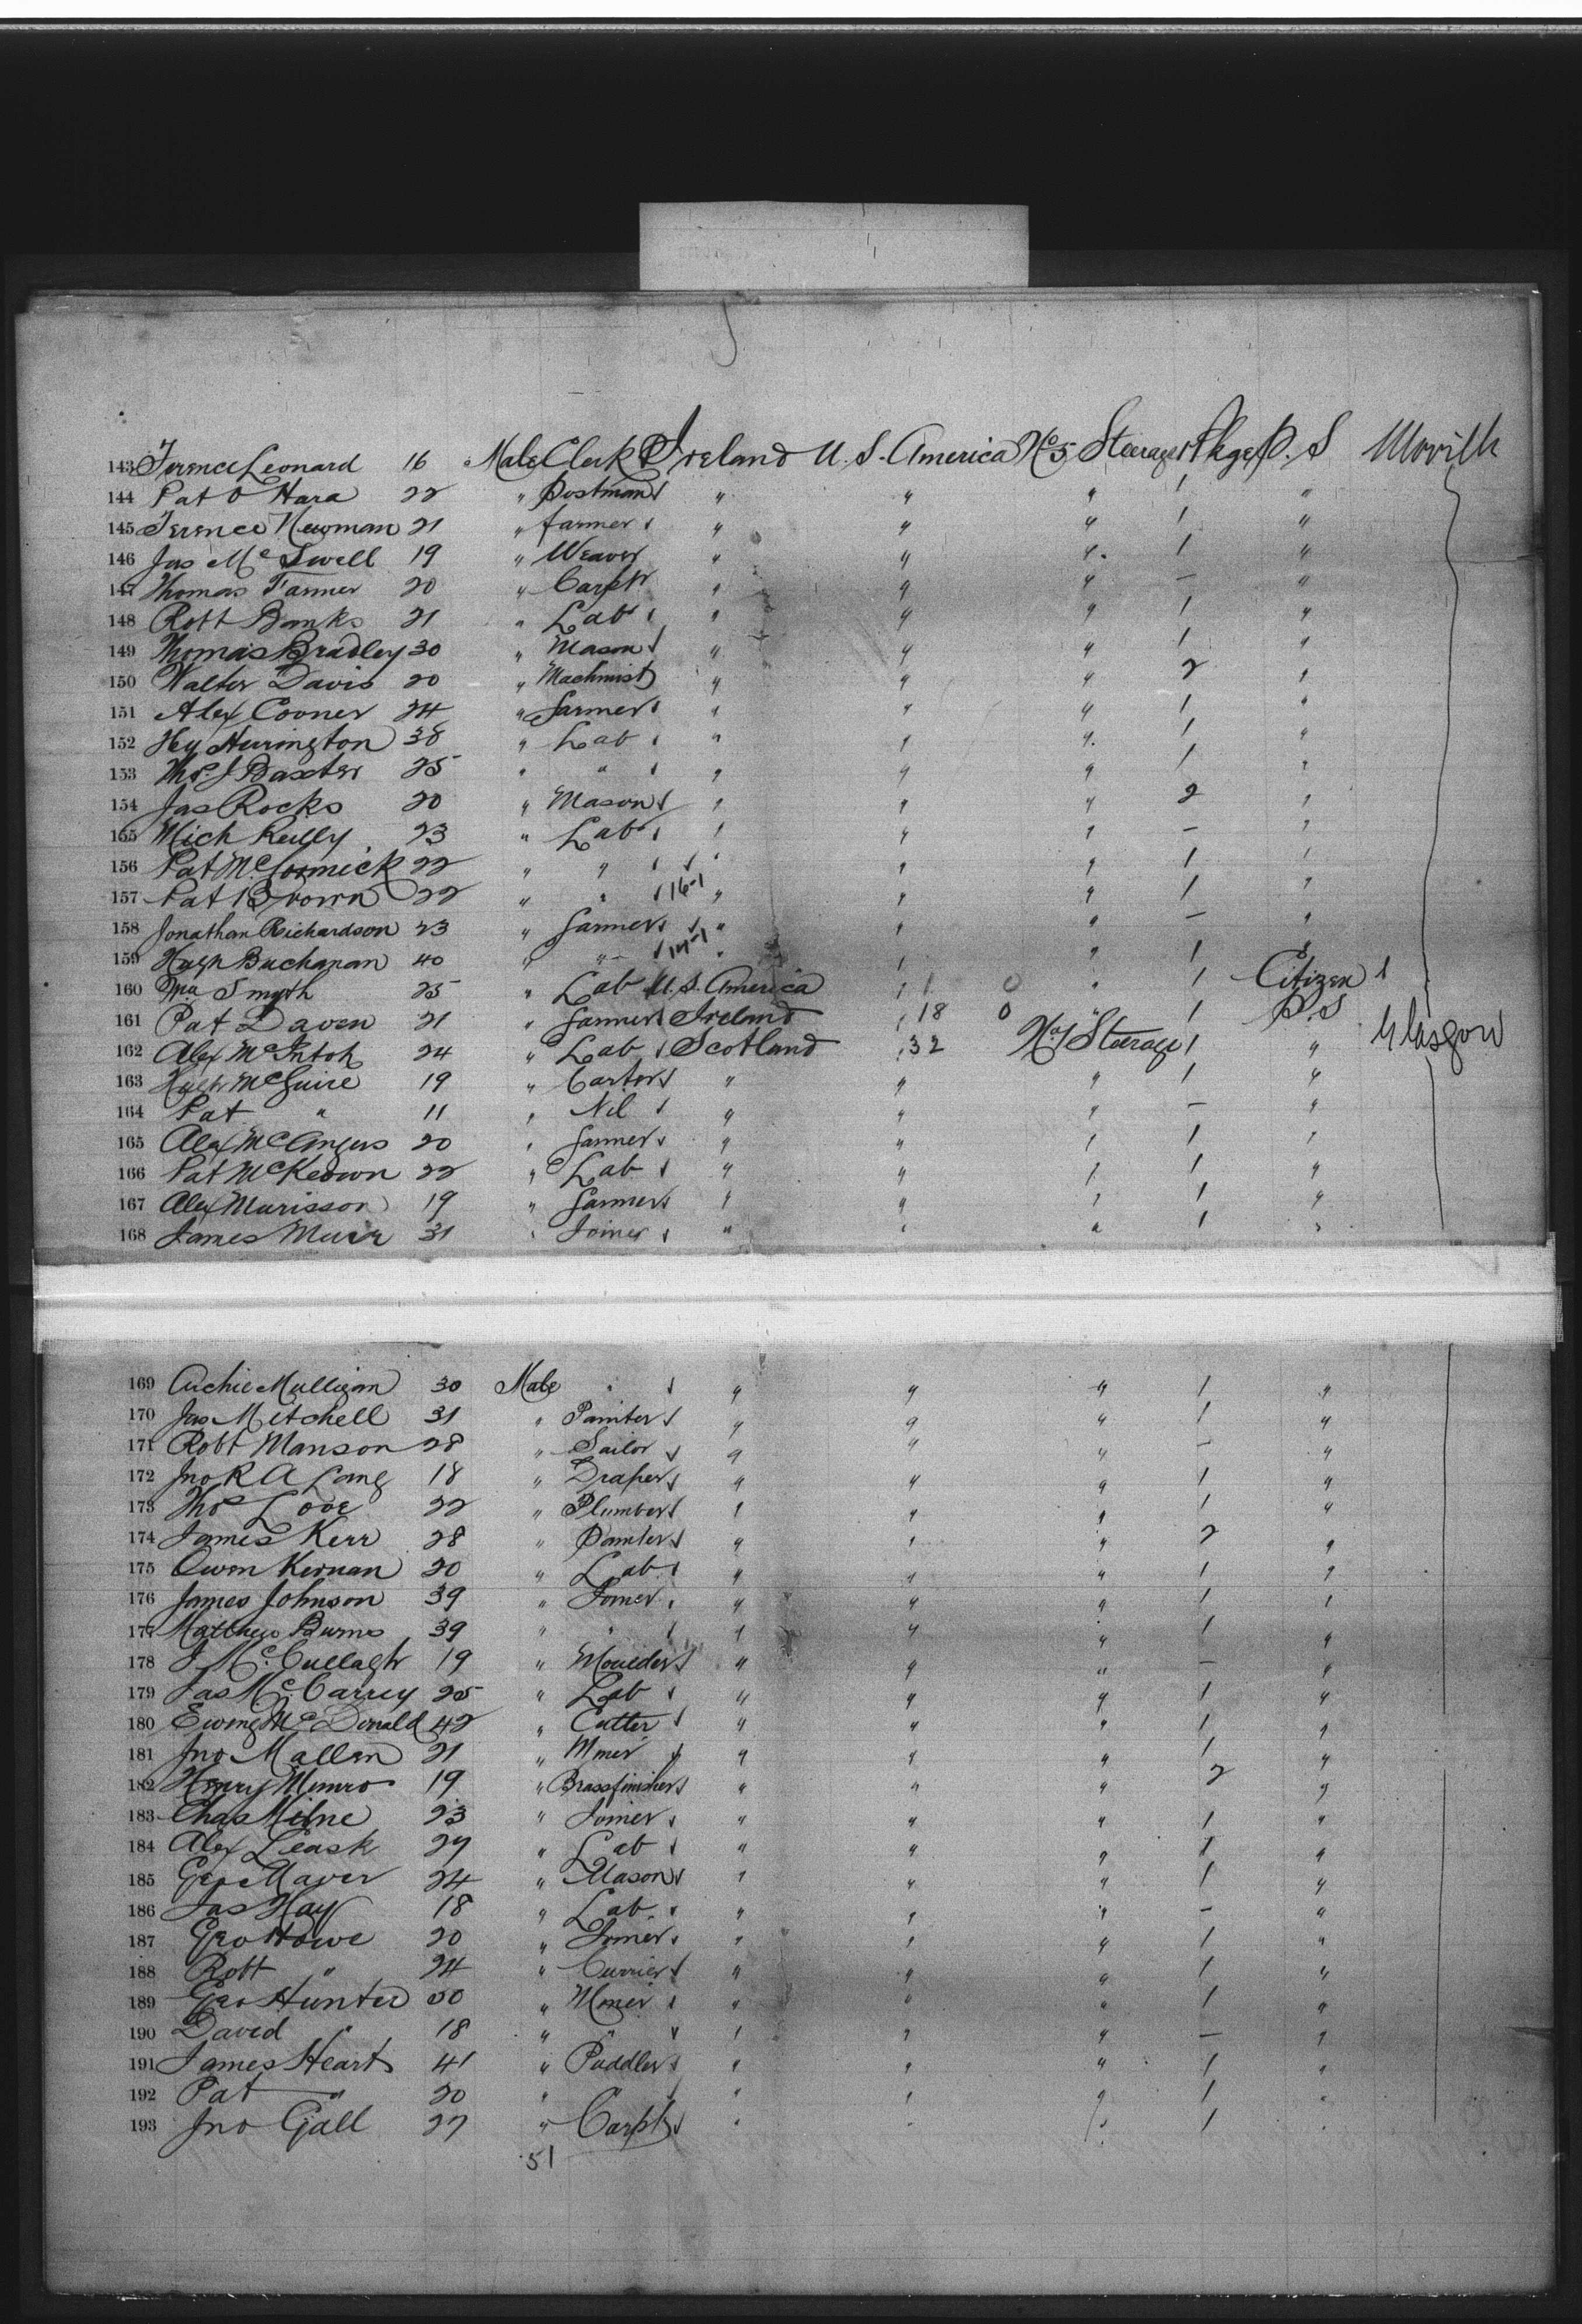 143 Terence Leonard 16 Male Clerk Ireland U. S. America No 5 Steerage 1 Pkge P. S Moville
144 Pat O Hara 22 " Postman " " " 1 "
145 Terence Newman 21 " farmer " " " 1 "
146 Jas Mc Swell 19 " Weaver " " " 1 "
147 Thomas Farmer 20 " Carptr " " " - "
148 Robt Banks 21 " Lab " " " 1 "
149 Thomas Bradley 30 " Mason " " " 1 "
150 Walter Davis 20 " Machinist " " " 2 "
151 Alex Conner 24 " farmer " " " 1 "
152 Hy Hurington 38 " Lab " " " 1 "
153 Thos J Baxter 25 " " " " " 1 "
154 Jas Rocks 20 " Mason " " " 2 "
155 Mich Reilly 23 " Lab " " " - "
156 Pat McCormick 22 " " " " " 1 "
157 Pat Brown 22 " " 16-1 " " " 1 "
158 Jonathan Richardson 23 " farmer " " " - "
159 Hugh Buchanan 40 " " " " " 1 "
160 Wm Smyth 25 " Lab U.S. America " 1 0 " 1 Citizen 1
161 Pat Daven 21 " farmer Ireland " 18 0 " 1 P.S
162 Alex McIntosh 24 " Lab Scotland " 32 No 1 Steerage 1 " Glasgow
163 Hugh McGuire 19 " Carter " " " 1 "
164 Pat " 11 " Nil " " " - "
165 Alex McAngus 20 " farmer " " " 1 "
166 Pat McKeown 22 " Lab " " " 1 "
167 Alex Murisson 19 " farmer " " " 1 "
168 James Muir 31 " Joiner " " " 1 "
169 Archie Mulligan 30 Male " " " " 1 "
170 Jas Mitchell 31 " Painter " " " 1 "
171 Robt Manson 28 " Sailor " " " - "
172 Jno R A Lang 18 " Draper " " " 1 "
173 Thos Love 22 " Plumber " " " 1 "
174 James Kerr 28 " Painter " " " 2 "
175 Owen Kernan 20 " Lab " " " 1 "
176 James Johnson 39 " Joiner " " " 1 "
177 Matthew Burns 39 " " " " " 1 "
178 J McCullagh 19 " Moulder " " " - "
179 Jas McCarrey 25 " Lab " " " 1 "
180 Ewing McDonald 42 " Cutter " " " 1 "
181 Jno Mallen 21 " Miner " " " 1 "
182 Henry Munro 19 " Brassfinisher " " " 2 "
183 Chas Milne 23 " Joiner " " " 1 "
184 Alex Leask 27 " Lab " " " 1 "
185 Geo Maver 24 " Mason " " " 1 "
186 Jas Hay 18 " Lab " " " - "
187 Geo Howe 20 " Joiner " " " 1 "
188 Robt " 24 " Currier " " " 1 "
189 Geo Hunter 50 " Miner " " " 1 "
190 David " 18 " " " " " - "
191 James Heart 41 " Puddler " " " 1 "
192 Pat " 20 " " " " " 1 "
193 Jno Gall 27 " Carptr " " " 1 "
51